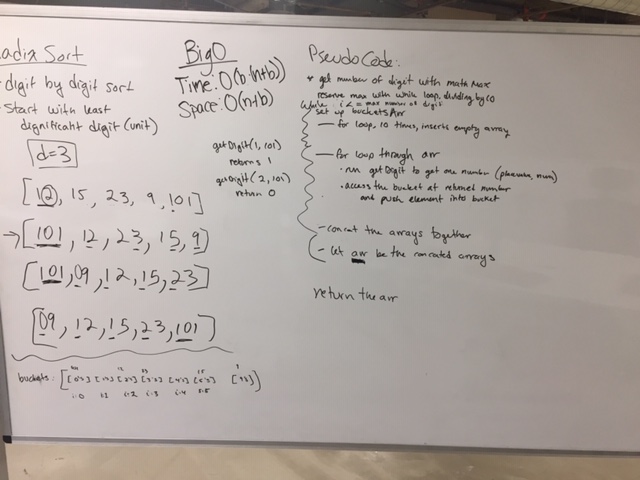 adix Sort
- digit by digit sort
- Start with least
significant digit (unit)
d=3
[12, 15, 23, 9, 101]
→ [101, 12, 23, 15, 9]
[101, 09, 12, 15, 23]
[09, 12, 15, 23, 101]
buckets:
i=0 i=2 i=3 i=4
Big O
Time: O(b·(n+b))
Space: O(n+b)
getDigit(1, 101)
returns 1
getDigit(2, 101)
return 0
PseudoCode:
get number of digit with math max
max with while loop, dividing by 10
while i <= max number of digit
set up bucketsArr
— for loop, 10 times, inserts empty array
— for loop through arr
• run getDigit to get one number (placevalue, num)
• access the bucket at returned number
and push element into bucket
- concat the arrays together
- let arr be the arrays
return the arr